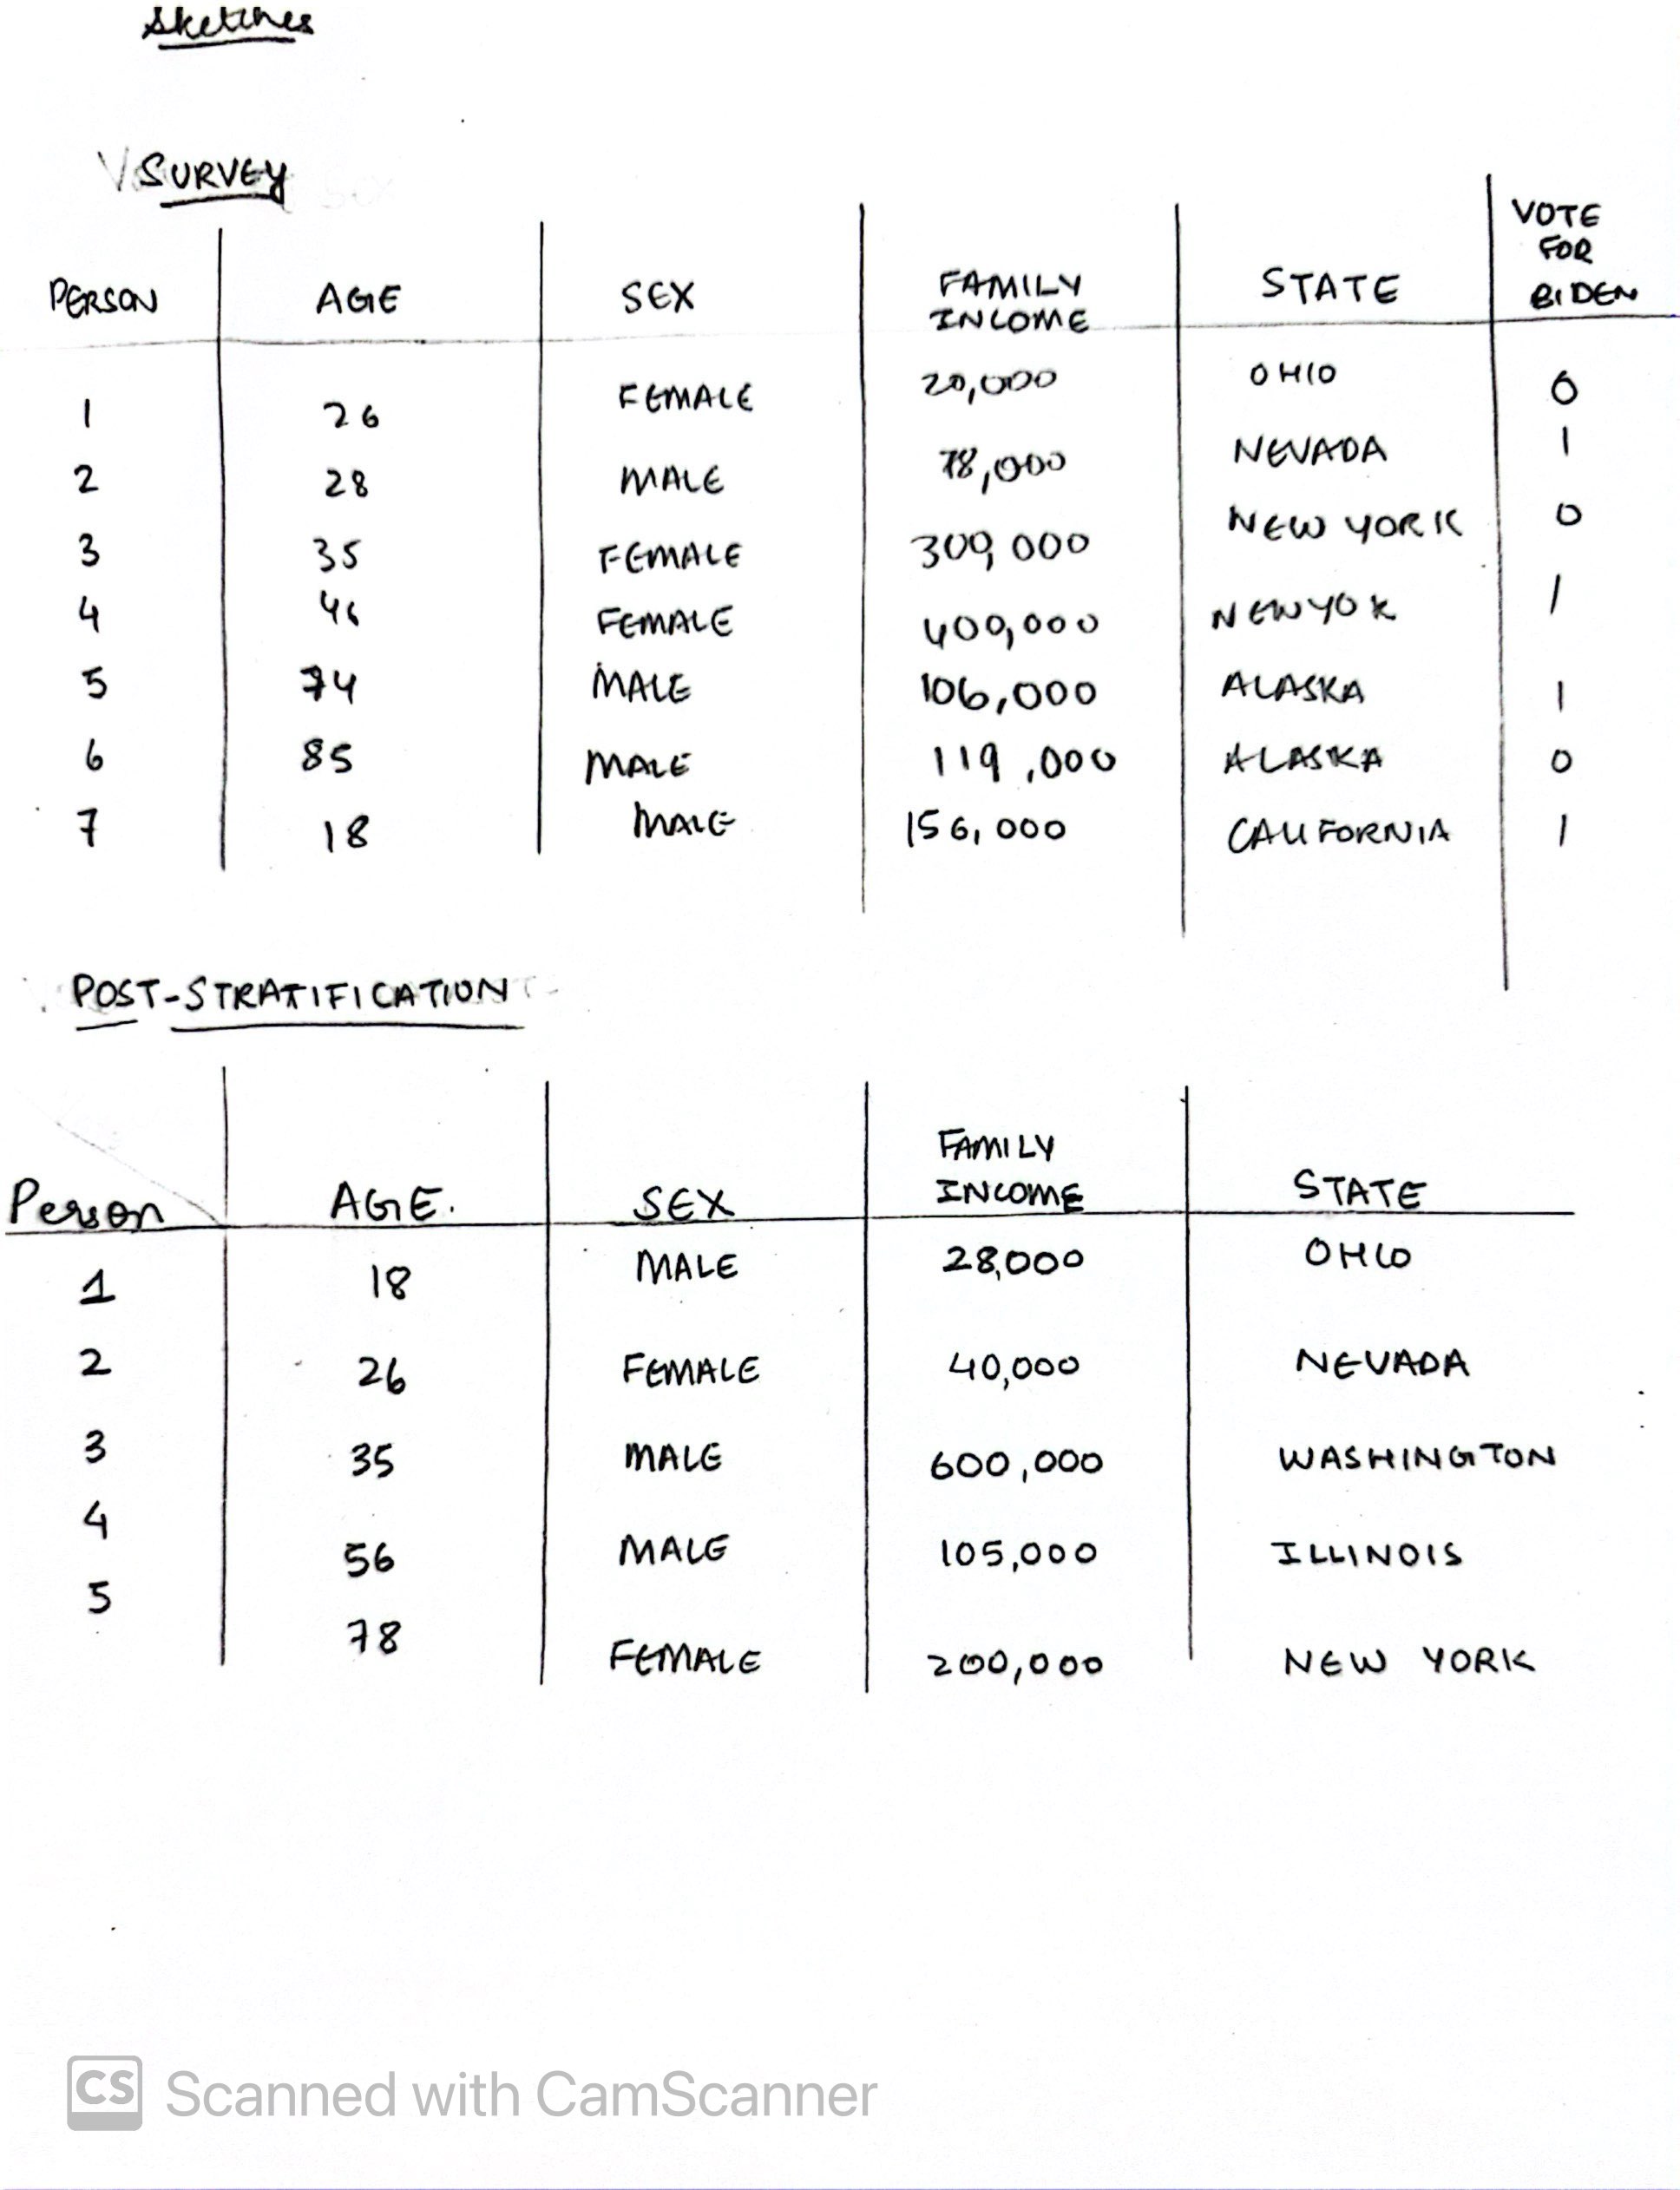 Sketches
SURVEY
PERSON AGE SEX FAMILY INCOME STATE VOTE FOR BIDEN
1 26 FEMALE 20,000 OHIO 0
2 28 MALE 78,000 NEVADA 1
3 35 FEMALE 309,000 NEW YORK 0
4 46 FEMALE 400,000 NEWYOK 1
5 74 MALE 106,000 ALASKA 1
6 85 MALE 119,000 ALASKA 0
7 18 MALE 156,000 CALIFORNIA 1
POST-STRATIFICATION
Person AGE. SEX FAMILY INCOME STATE
1 18 MALE 28,000 OHIO
2 26 FEMALE 40,000 NEVADA
3 35 MALE 600,000 WASHINGTON
4 56 MALE 105,000 ILLINOIS
5 78 FEMALE 200,000 NEW YORK
CS Scanned with CamScanner